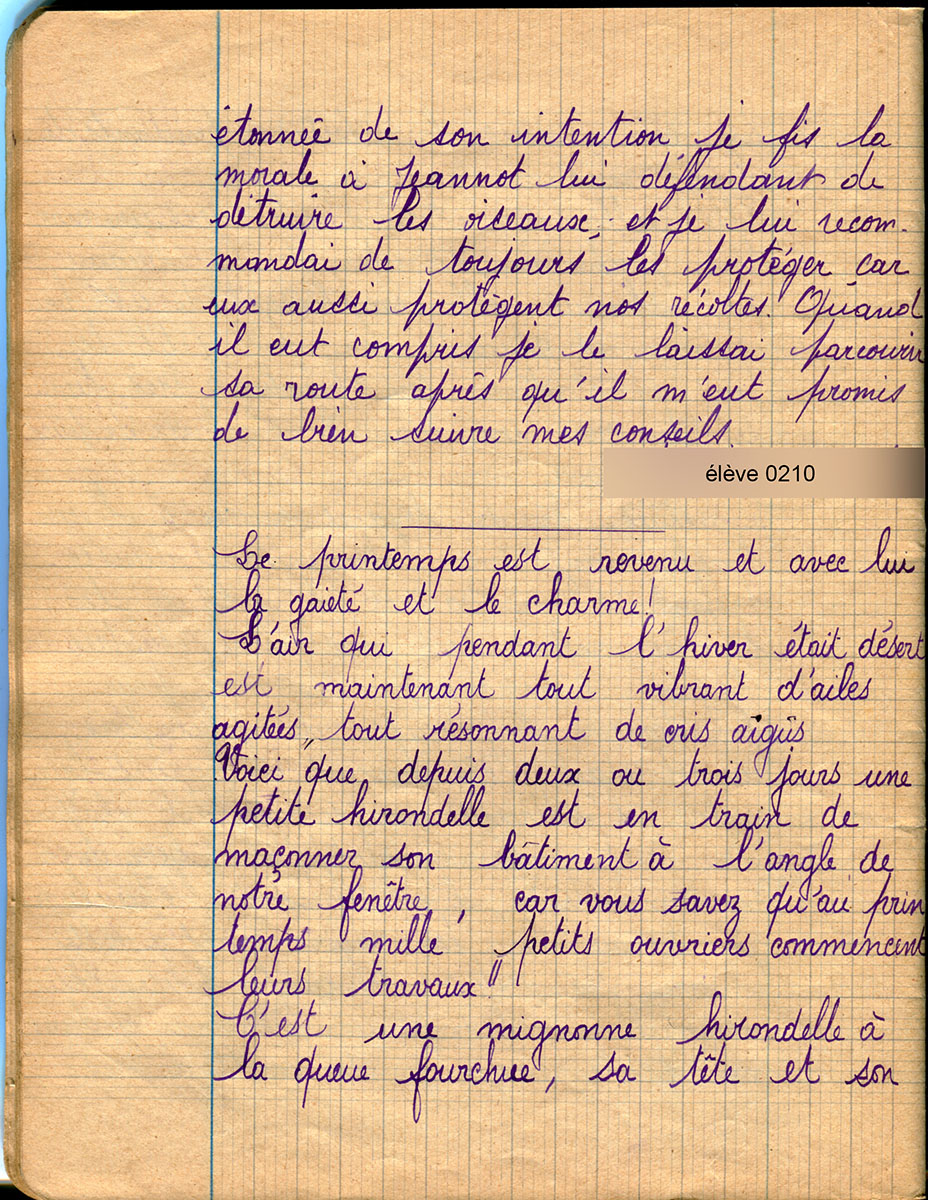 étonnée de son intention je fis la
morale à Jeannot lui défendant de
détruire les oiseaux, et je lui recom-
mandai de toujours les protéger car
eux aussi protègent nos récoltes. Quand
il eut compris je le laissai parcourir
sa route après qu'il m'eut promis
de bien suivre mes conseils.
élève 0210
Le printemps est revenu et avec lui
la gaieté et le charme!
L'air qui pendant l'hiver était désert
est maintenant tout vibrant d'ailes
agitées, tout résonnant de cris aigüs
Voici que depuis deux ou trois jours une
petite hirondelle est en train de
maçonner son bâtiment à l'angle de
notre fenêtre, car vous savez qu'au prin
temps mille petits ouvriers commencent
leurs travaux"
C'est une mignonne hirondelle à
la queue fourchue, sa tête et son